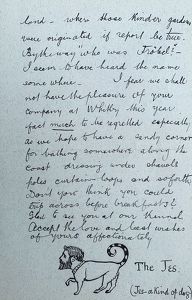 land - where those Kinder gardens
were originated if report be true.
By the way "who was Fröbel?"
I seem to have heard the name
some where - I fear we shall
not have the pleasure of your
company at Whitby this year
(fact much to be regretted especially
as we hope to have a sandy corner
for bathing somewhere along the
coast dressing under shawls
poles curtain loops and soforth
Dont you think you could
trip across before breakfast?
Glad to see you at our Kennel
Accept the love and best wishes
of yours affectionately
The Jes.
(Jes-a kind of dog)